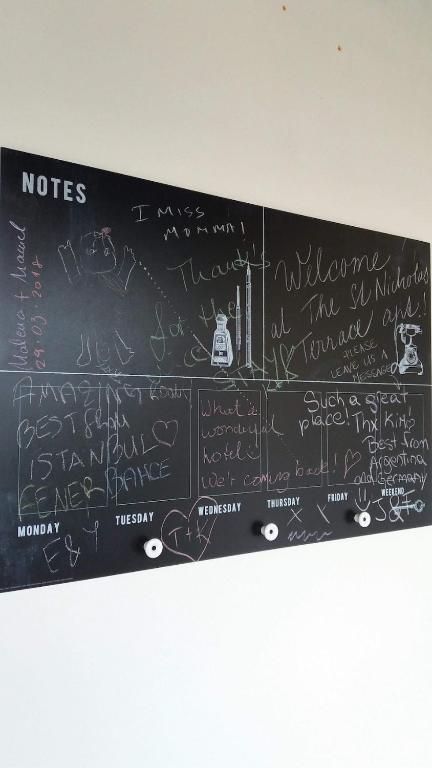 NOTES
I MISS
MOMMA!
Thank's
for the
STAY
Malena + Marcel
29.03.2018
Welcome
at The St Nicholas
Terrace aps.!!
PLEASE
LEAVE US A
MESSAGE
AMAZING
BEST FROM
ISTANBUL
FENER BAHCE
What a
wonderful
hotel
We'r coming back!
Such a great
place!
Thx Kitti
Best from
Argentina
and Germany
J&F
MONDAY
TUESDAY
WEDNESDAY
THURSDAY
FRIDAY
WEEKEND
E & Y
T+K
X X